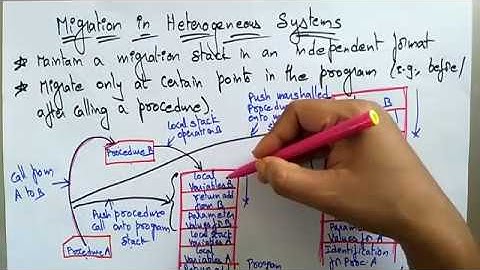 Migration in Heterogeneous Systems
* Maintain a migration stack in an independent format
* Migrate only at certain points in the program (e.g., before/
after calling a procedure).
Procedure B
Local stack
operations
Push marshalled
Procedure
onto
B
Call from
A to B
Push procedure
call onto program
stack
Procedure A
Local
Variables B
return add
from B
Parameter
Values for B
Local stack
Variables A
Local
Variables A
Program
Parame
Values for A
Identification
for Proc A